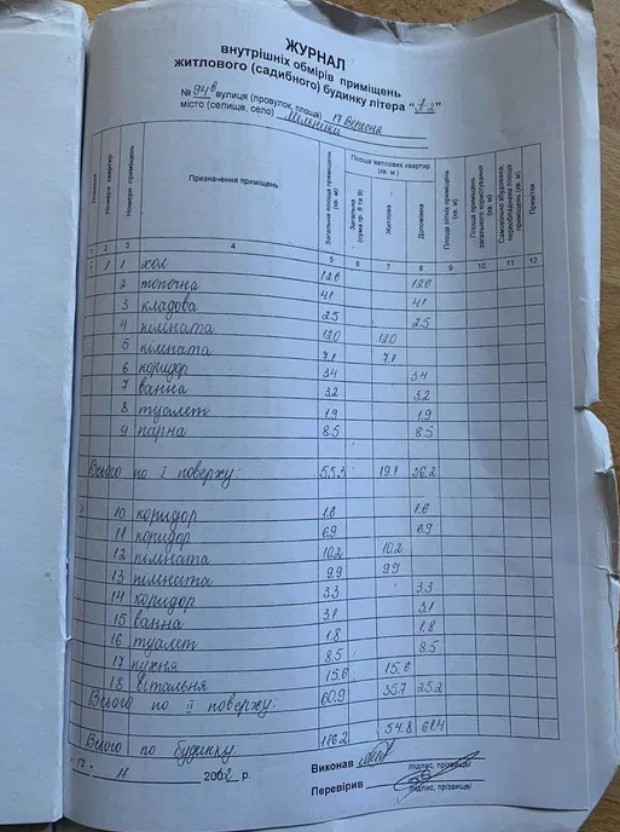 ЖУРНАЛ
внутрішніх обмірів приміщень
житлового (садибного) будинку літера "А2"
№ 94в вулиця (провулок, площа) 17 Вересня
місто (селище, село) Мельники
Поверхи Номери квартир Номери приміщень Призначення приміщень Загальна площа приміщень (кв. м) Площа житлових квартир (кв. м.) Загальна (сума гр. 8 та 9) Житлова Допоміжна Площа літніх приміщень (кв. м) Площа приміщень загального користування (кв. м) Самовільно збудована, переобладнана площа приміщень (кв. м) Примітки
1 2 3 4 5 6 7 8 9 10 11 12
1 1 1 хол 12.0 12.0
2 топочна 4.1 4.1
3 кладова 2.5 2.5
4 кімната 12.0 12.0
5 кімната 7.1 7.1
6 коридор 3.4 3.4
7 ванна 3.2 3.2
8 туалет 1.9 1.9
9 парна 8.5 8.5
Всього по І поверху: 55.3 19.1 36.2
10 коридор 1.6 1.6
11 коридор 6.9 6.9
12 кімната 10.2 10.2
13 кімната 9.9 9.9
14 коридор 3.3 3.3
15 ванна 3.1 3.1
16 туалет 1.8 1.8
17 кухня 8.5 8.5
18 вітальня 15.6 15.6
Всього по ІІ поверху: 60.9 35.7 25.2
Всього по будинку: 116.2 54.8 61.4
17 11 2002 р.
Виконав
/підпис, прізвище/
Перевірив
/підпис, прізвище/